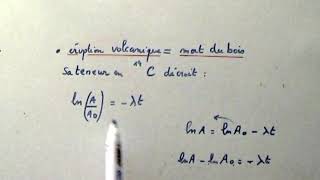 • éruption volcanique = mort du bois
sa teneur en ¹⁴C décroit :
ln(A/A₀) = -λt
ln A = ln A₀ - λt
ln A - ln A₀ = -λt